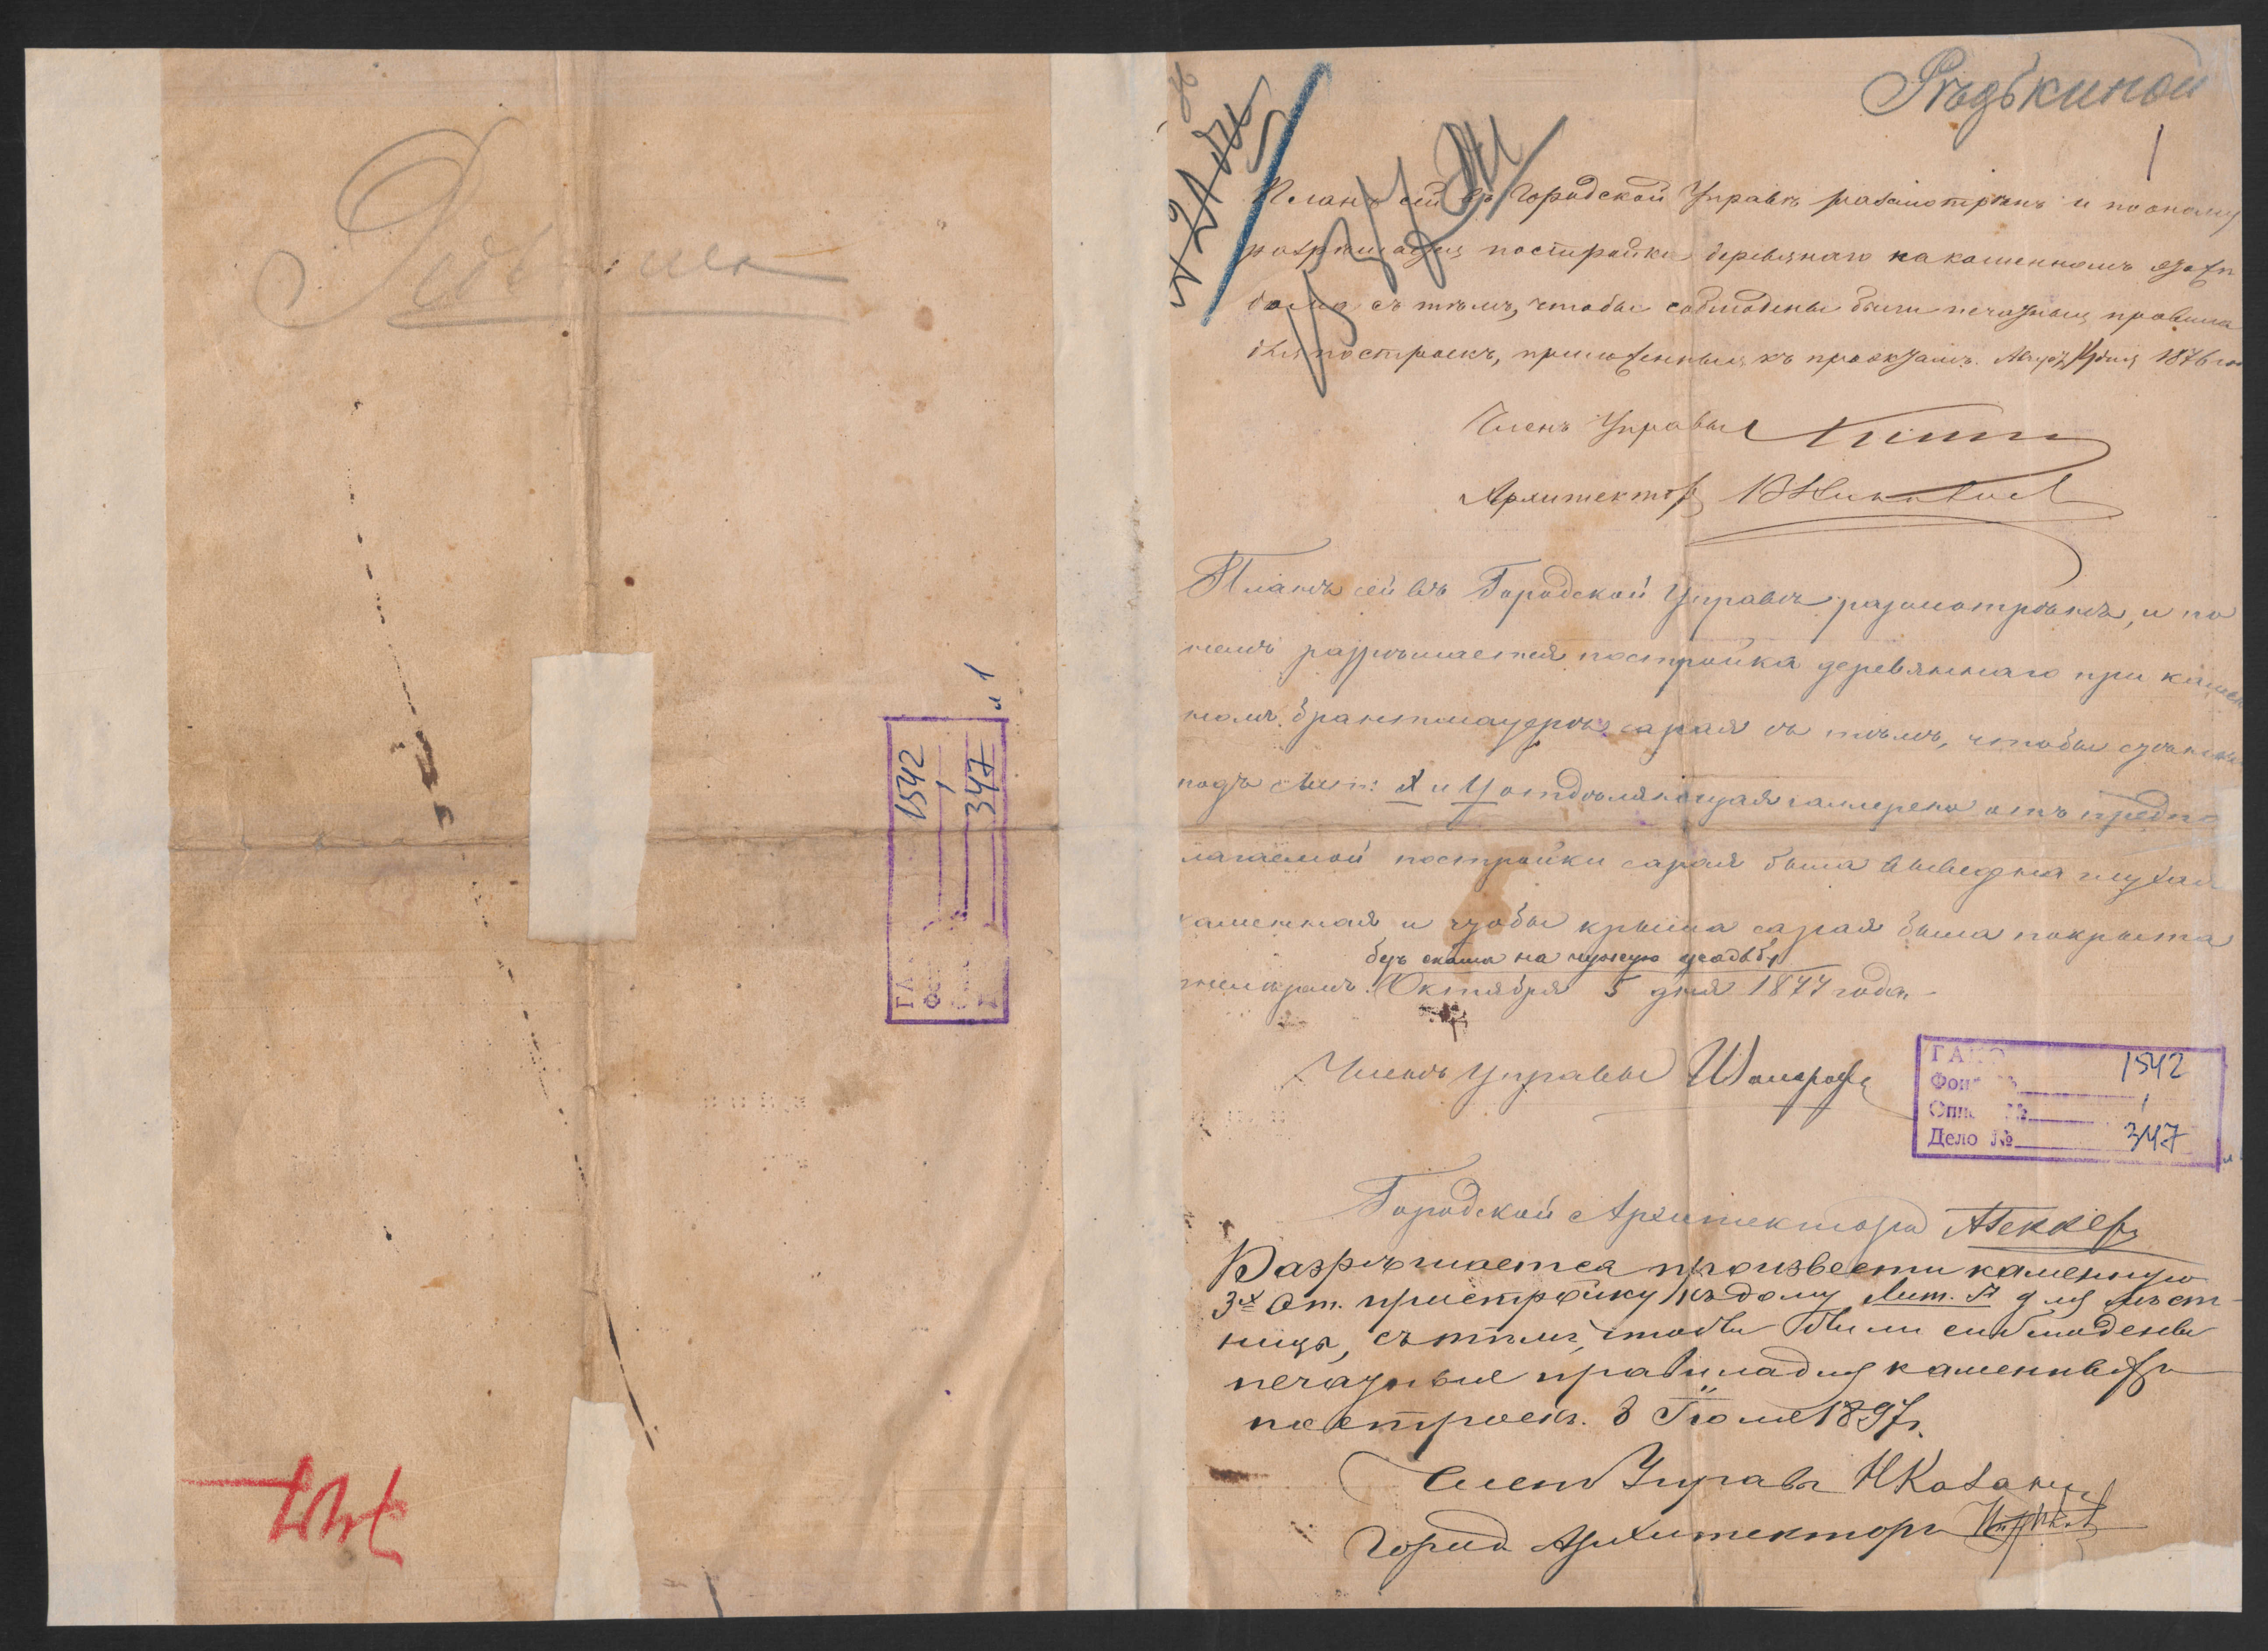 л 1
1542
1
347
ГА
Рѣдькиной
1
Планъ сей въ Городской Управѣ разсмотрѣнъ и по оному
разрѣшается постройка деревяннаго на каменномъ этажѣ
дома съ тѣмъ, чтобы соблюдены были печатныя правила
для построекъ, приложенныя къ проэктамъ. дня 1876 го
Членъ Управы
Архитекторъ
Планъ сей въ Городской Управѣ разсмотрѣнъ, и по
немъ разрѣшается постройка деревяннаго при камен
номъ брантмауерѣ сарая съ тѣмъ, чтобы стѣнка
подъ лит: Х и У отдѣляющая галлерею отъ предпо
лагаемой постройки сарая была выведена глухая
каменная и чтобы крыша сарая была покрыта
безъ ската на чужую усадьбу
желѣзомъ. Октября 5 дня 1877 года.
Членъ Управы
ГАКО
Фонд № 1542
Опись № 1
Дело № 347
Городской Архитекторъ
Разрѣшается произвести каменную
3х эт. пристройку къ дому Лит. А для лѣст-
ницы, съ тѣмъ, чтобы были соблюдены
печатные правила для каменныхъ
построекъ. 8 Іюля 1897 г.
Членъ Управы
Город. Архитекторъ